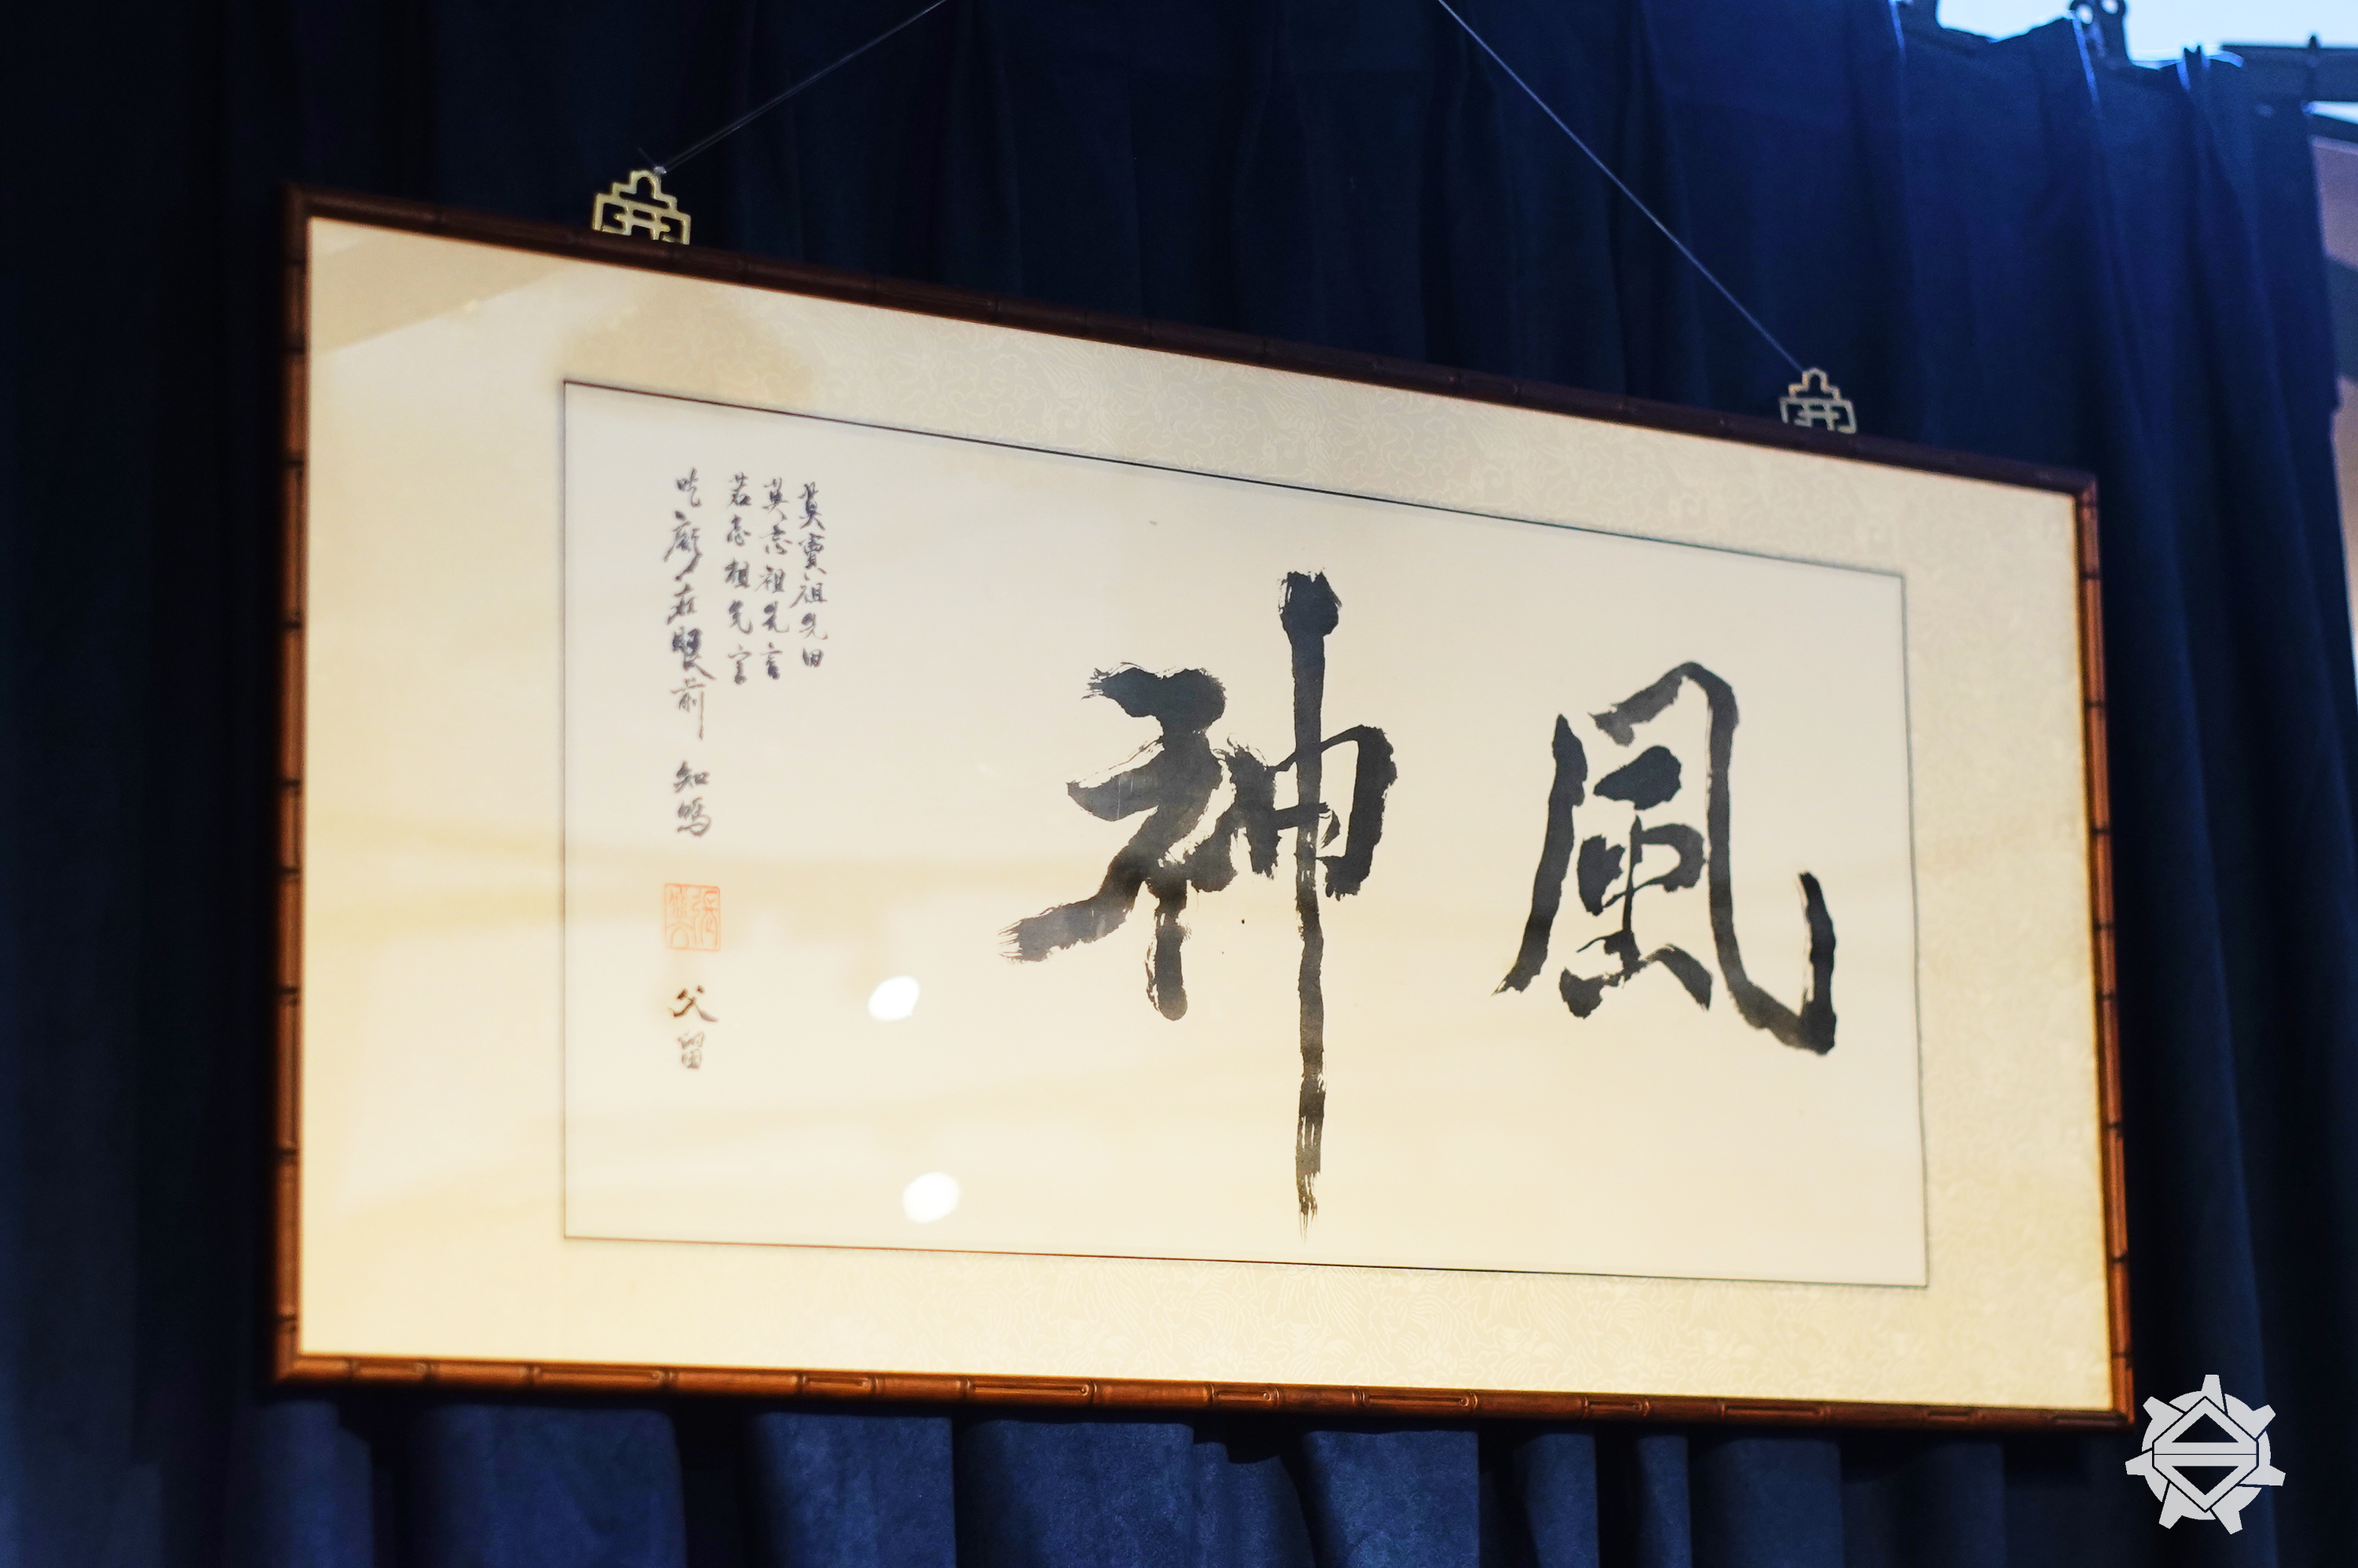 風神
莫賣祖先田
莫忘祖先言
若忘祖先言
吃虧在眼前 知嗎 父留